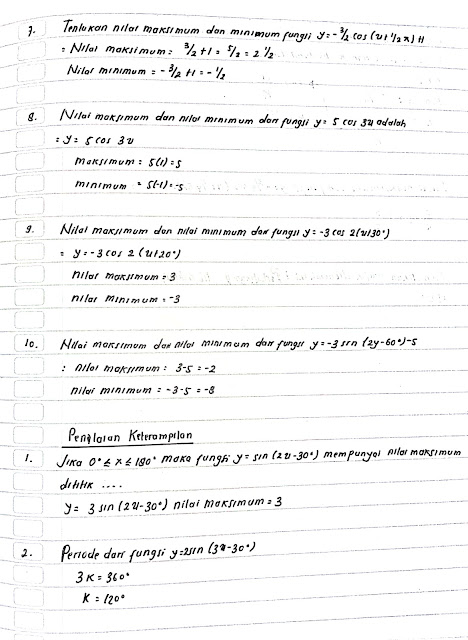 7. Tentukan nilai maksimum dan minimum fungsi y = -3/2 cos (x + 1/2 π) + 1
= Nilai maksimum = 3/2 + 1 = 5/2 = 2 1/2
Nilai minimum = -3/2 + 1 = -1/2
8. Nilai maksimum dan nilai minimum dari fungsi y = 5 cos 3x adalah
= y = 5 cos 3x
maksimum = 5(1) = 5
minimum = 5(-1) = -5
9. Nilai maksimum dan nilai minimum dari fungsi y = -3 cos 2(x+30°)
= y = -3 cos 2 (x+20°)
nilai maksimum = 3
nilai minimum = -3
10. Nilai maksimum dan nilai minimum dari fungsi y = -3 sin (2y-60°)-5
: nilai maksimum = 3-5 = -2
nilai minimum = -3-5 = -8
Penilaian Keterampilan
1. Jika 0° ≤ x ≤ 180° maka fungsi y = sin (2x-30°) mempunyai nilai maksimum
dititik ....
y = 3 sin (2x-30°) nilai maksimum = 3
2. Periode dari fungsi y=2sin (3x-30°)
3K = 360°
K = 120°